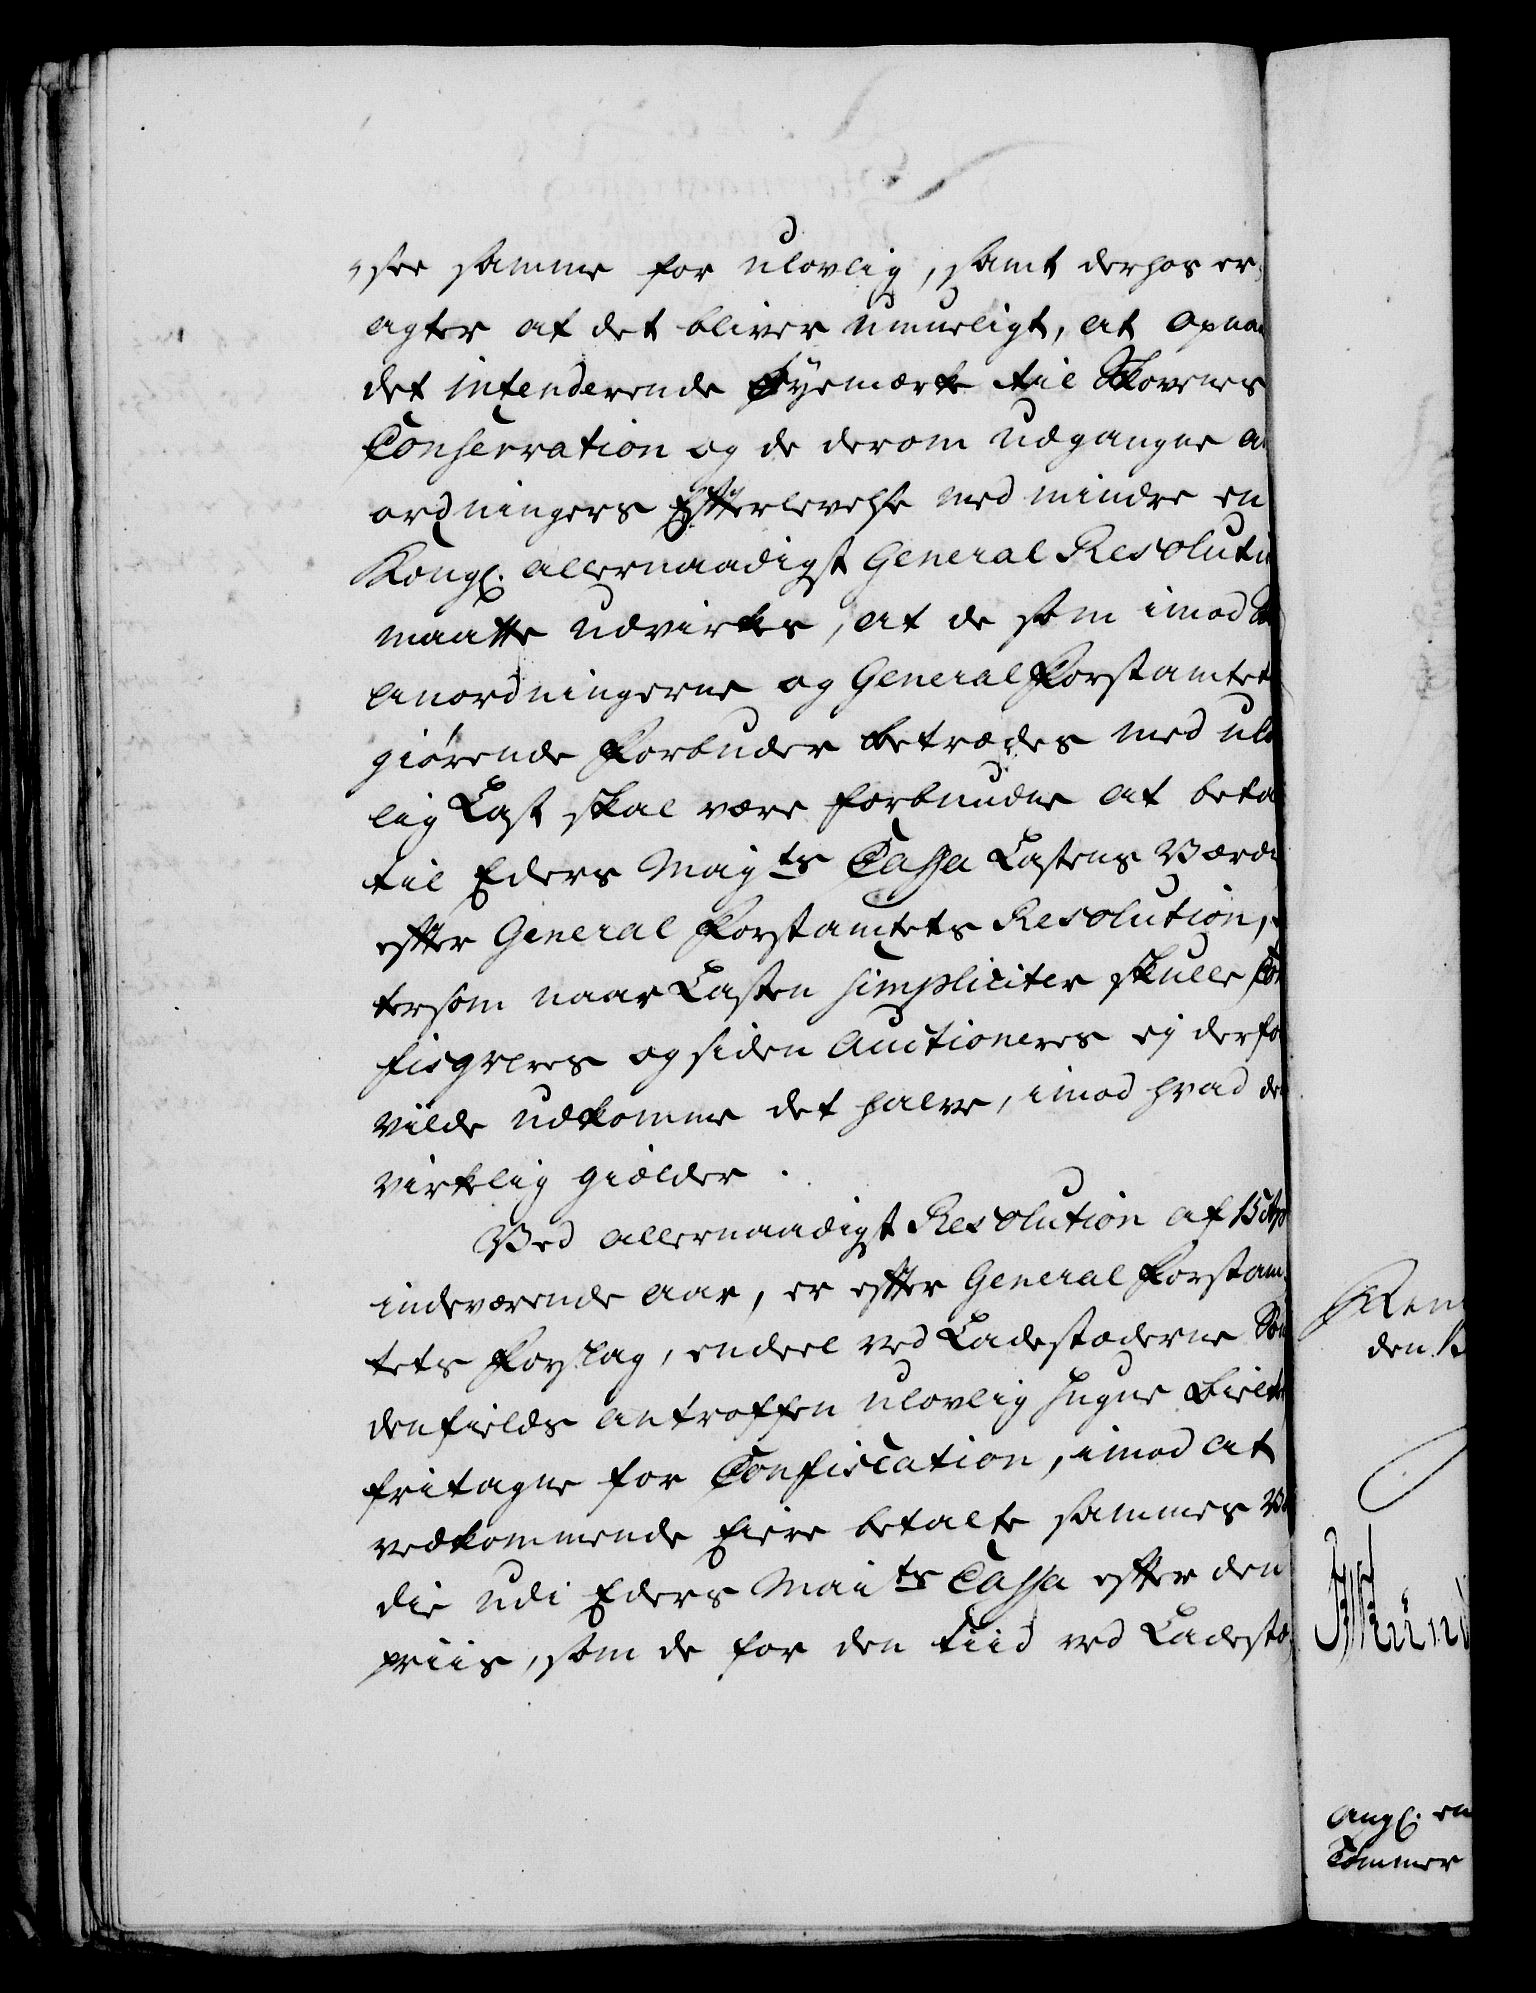 see samme for ulovlig, samt derhos er-
agter at det bliver umueligt, at opnaa
det intenderende Øyemærke til Skovenes
Conservation og de derom udgangne a
ordningers Efterlevelse med mindre en
Kongl. allernaadigst General Resoluti
maatte udvirkes, at de som imod
anordningerne og General Forstamtet
giørende Forbuder betrædes med ulo
lig Last skal være forbundne at beta
til Eders Mayts Cassa Lastens Værdi
efter General Forstamtets Resolution,
tersom naar Lasten simpliciter skulle Con
fisqveres og siden Auctioneres ej derfo
vilde udkomme det halve, imod hvad de
virkelig gielder.
Ved allernaadigst Resolution af 13
indeværende Aar, er efter General Forstam-
tets Forslag, endeel ved Ladestæderne Søn
denfields antroffen ulovlig hugne Bielker
fritagne for Confiscation, imod at
vedkommende Eiere betalte sammes Vær
die udi Eders Maits Cassa efter den
priis, som de for den Tiid ved Ladestæ-
Ren
den 1
Angl. en
Tømmer